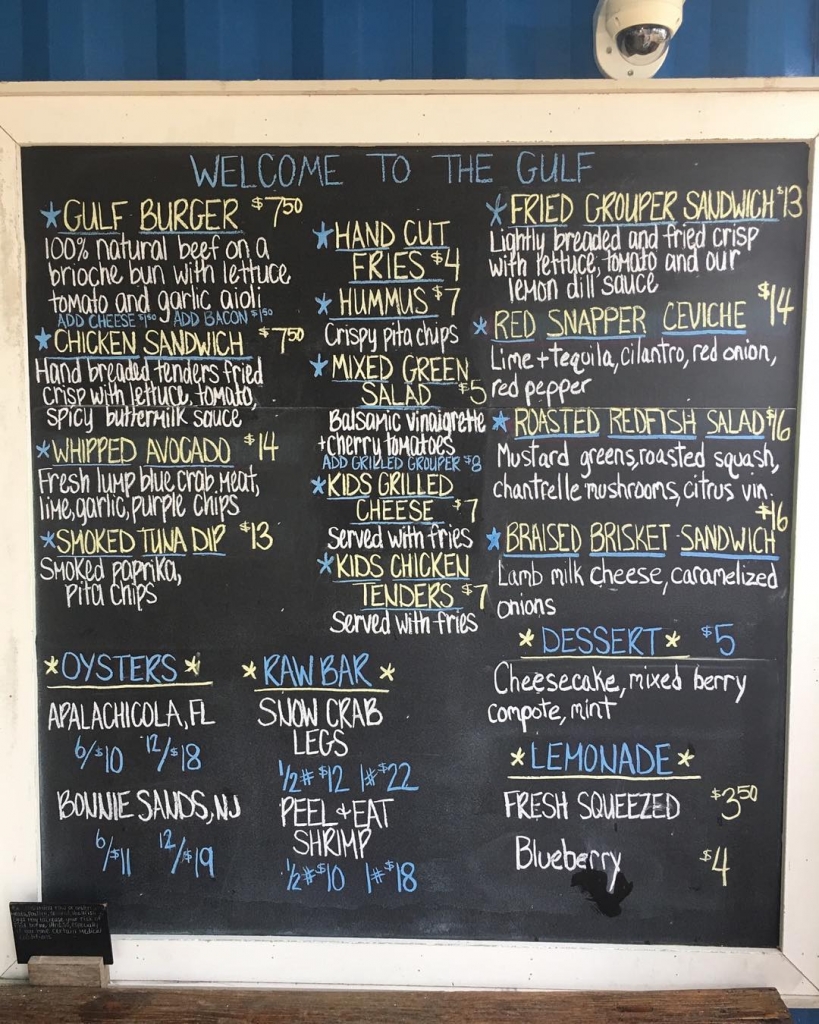 WELCOME TO THE GULF
★ GULF BURGER $7.50
100% natural beef on a
brioche bun with lettuce,
tomato and garlic aioli
ADD CHEESE $1.50 ADD BACON $1.50
★ CHICKEN SANDWICH $7.50
Hand breaded tenders fried
crisp with lettuce, tomato,
spicy buttermilk sauce
★ WHIPPED AVOCADO $14
Fresh lump blue crab meat,
lime, garlic, purple chips
★ SMOKED TUNA DIP $13
Smoked paprika,
Pita chips
★ HAND CUT
FRIES $4
★ HUMMUS $7
Crispy pita chips
★ MIXED GREEN
SALAD $5
Balsamic vinaigrette
+ cherry tomatoes
ADD GRILLED GROUPER $8
★ KIDS GRILLED
CHEESE $7
Served with fries
★ KIDS CHICKEN
TENDERS $7
Served with fries
★ FRIED GROUPER SANDWICH $13
Lightly breaded and fried crisp
with lettuce, tomato and our
lemon dill sauce
★ RED SNAPPER CEVICHE $14
Lime + tequila, cilantro, red onion,
red pepper
★ ROASTED REDFISH SALAD $16
Mustard greens, roasted squash,
chantrelle mushrooms, citrus vin.
★ BRAISED BRISKET SANDWICH $16
Lamb milk cheese, caramelized
onions
★ DESSERT ★ $5
Cheesecake, mixed berry
compote, mint
★ LEMONADE ★
FRESH SQUEEZED $3.50
Blueberry $4
★ OYSTERS ★
APALACHICOLA, FL
6/$10 12/$18
BONNIE SANDS, NJ
6/$11 12/$19
★ RAW BAR ★
SNOW CRAB
LEGS
1/2# $12 1# $22
PEEL + EAT
SHRIMP
1/2# $10 1# $18